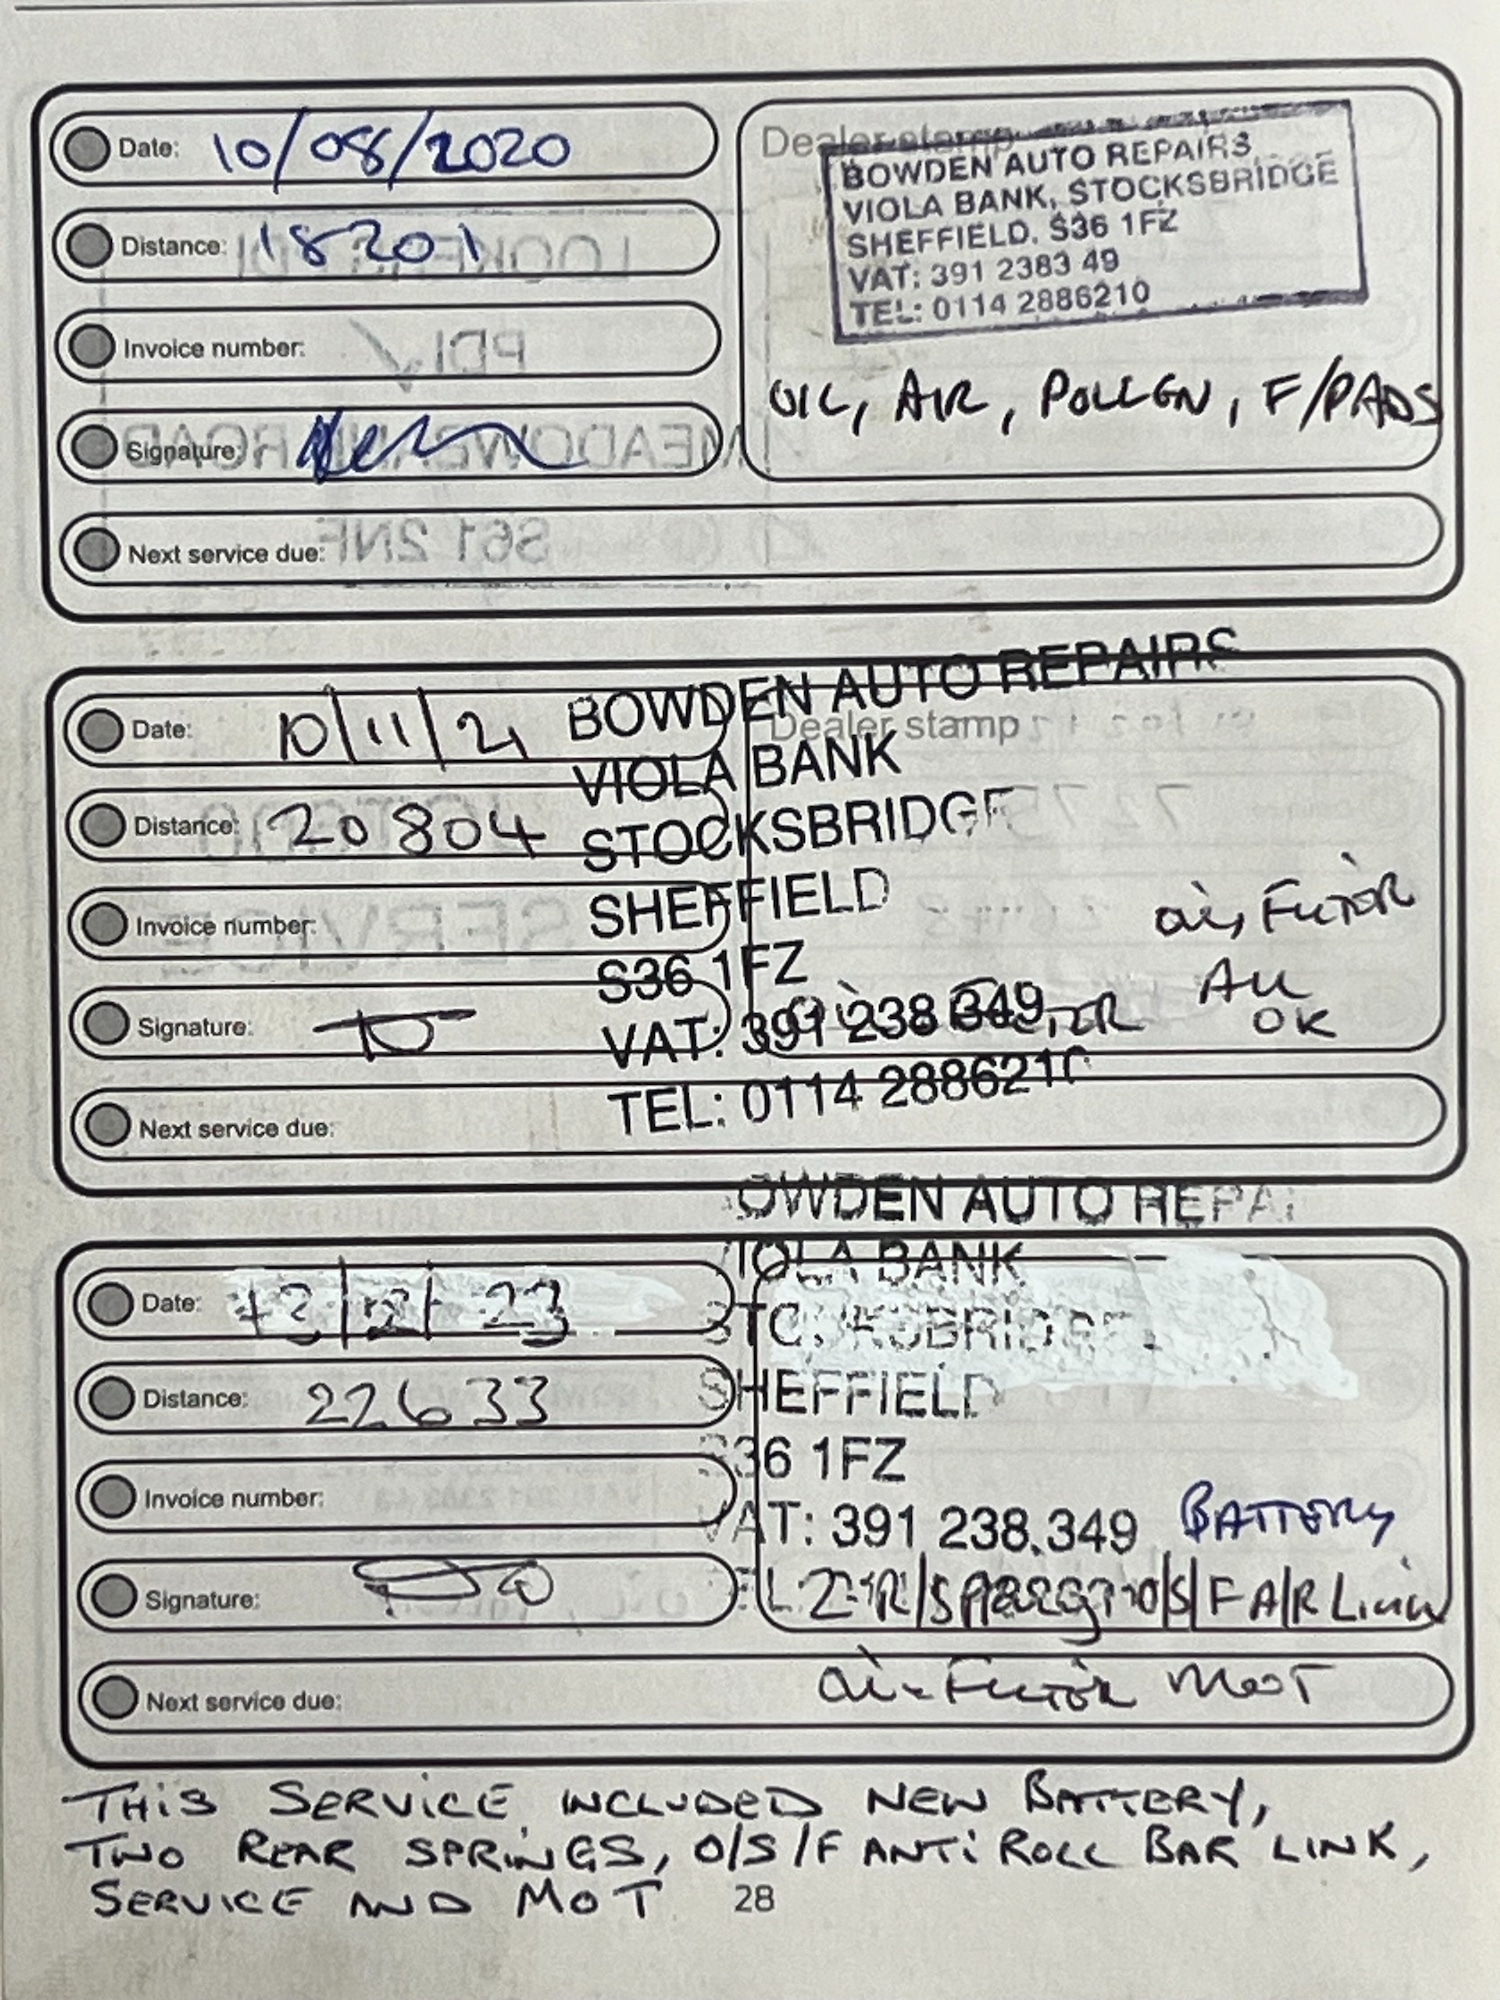 Date: 10/08/2020
Distance: 18201
Invoice number:
Signature:
Next service due:
Dealer stamp
BOWDEN AUTO REPAIRS
VIOLA BANK, STOCKSBRIDGE
SHEFFIELD. S36 1FZ
VAT: 391 2383 49
TEL: 0114 2886210
OIL, AIR, POLLEN, F/PADS
Date: 10/11/21
Distance: 20804
Invoice number:
Signature:
Next service due:
Dealer stamp
BOWDEN AUTO REPAIRS
VIOLA BANK
STOCKSBRIDGE
SHEFFIELD
S36 1FZ
VAT: 391 238 349
TEL: 0114 2886210
FILTER
ALL
OK
Date: 23
Distance: 22633
Invoice number:
Signature:
Next service due:
OWDEN AUTO REPAI
IOLA BANK
STOCKSBRIDGE
SHEFFIELD
S36 1FZ
VAT: 391 238.349
BATTERY
FILTER MOT
THIS SERVICE INCLUDED NEW BATTERY,
TWO REAR SPRINGS, O/S/F ANTI ROLL BAR LINK,
SERVICE AND MOT
28